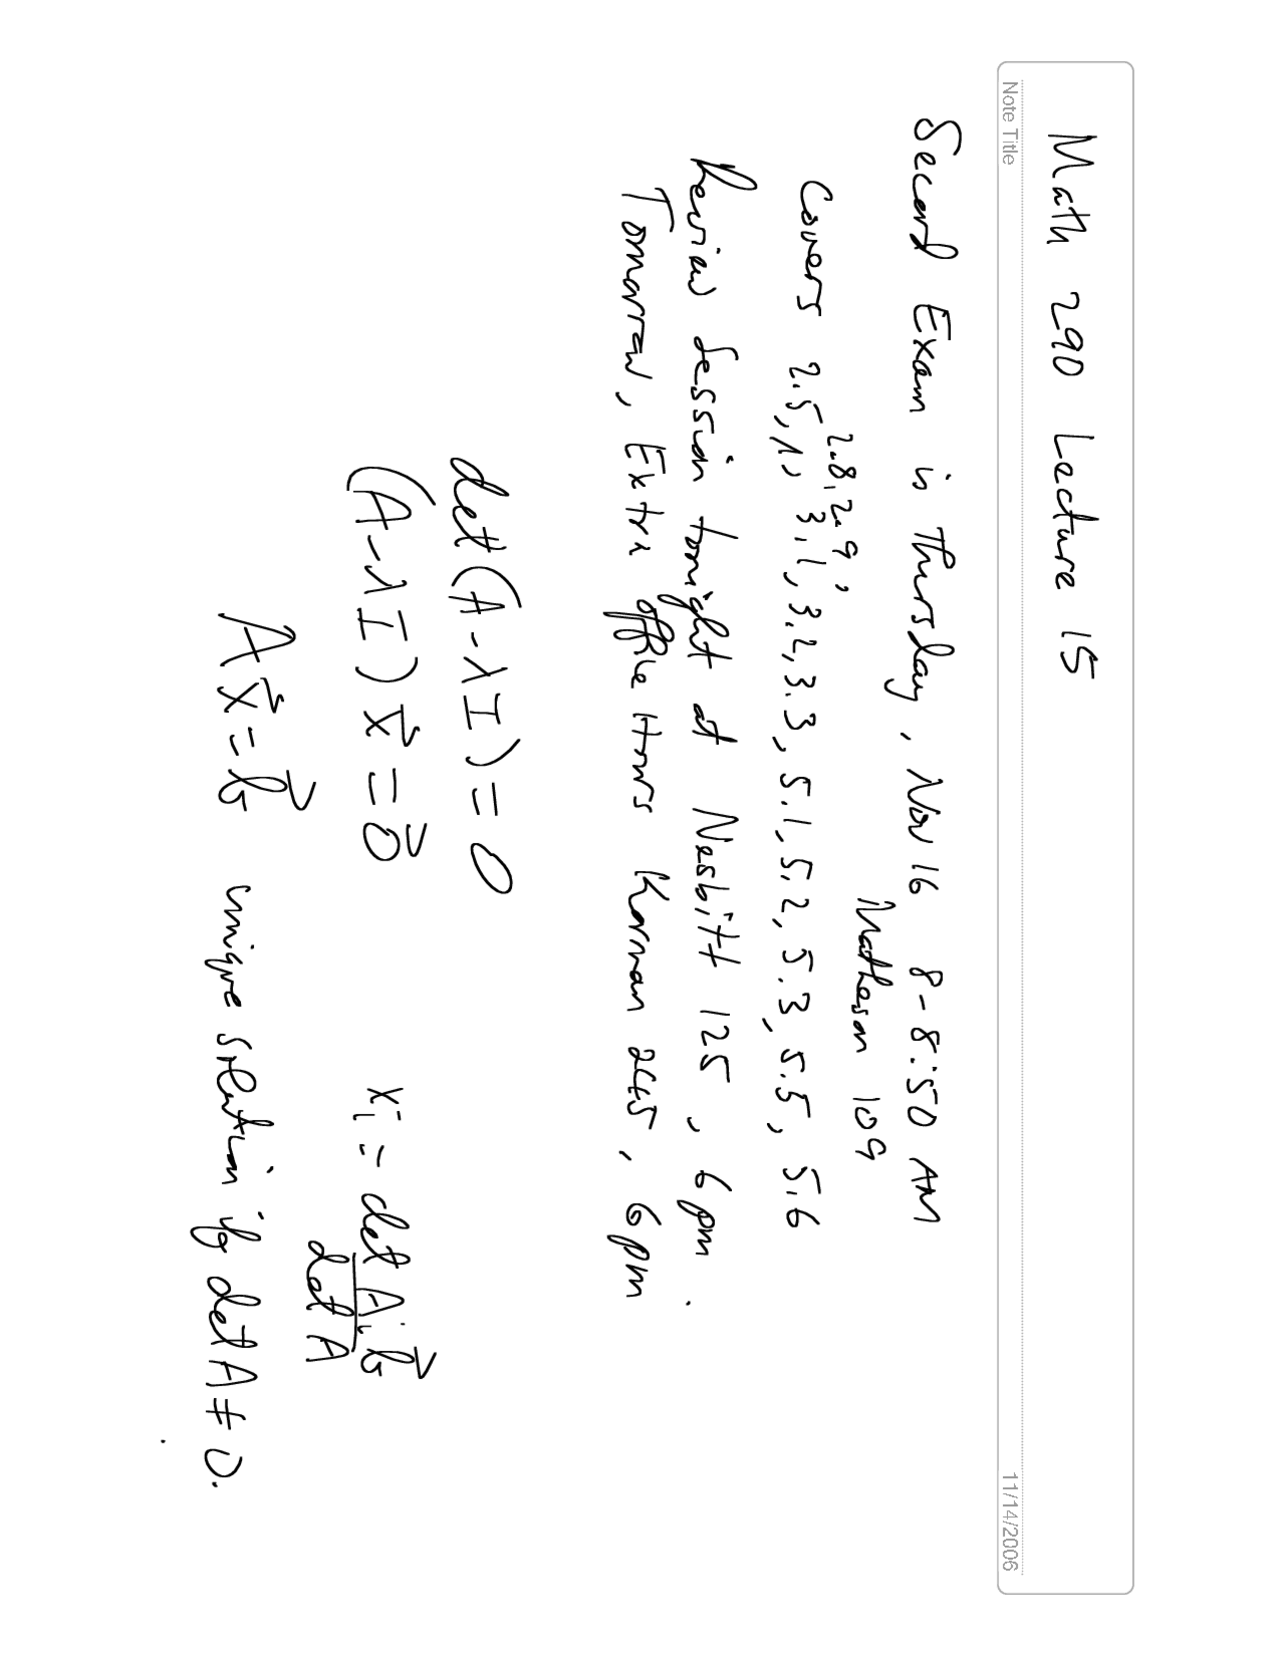 Math 290 Lecture 15
Note Title
11/14/2006
Second Exam is Thursday, Nov 16 8-8:50 AM
Matheson 109
2.8, 2.9,
Covers 2.5, 3.1, 3.2, 3.3, 5.1, 5.2, 5.3, 5.5, 5.6
Review Session tonight at Nesbitt 125, 6pm.
Tomorrow, Extra office Hours Korman 245, 6pm
det(A-λI) = 0
(A-λI)x⃗ = 0⃗
xᵢ = det Aᵢ b⃗
det A
Ax⃗ = b⃗ unique solution if det A ≠ 0.